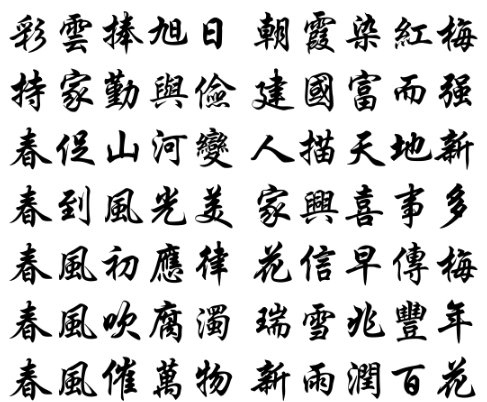 彩雲捧旭日 朝霞染紅梅
持家勤與儉 建國富而强
春促山河變 人描天地新
春到風光美 家興喜事多
春風初應律 花信早傳梅
春風吹腐濁 瑞雪兆豐年
春風催萬物 新雨潤百花